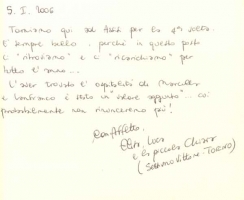 5. I. 2006
Torniamo qui ad Assisi per la 4ª volta.
È sempre bello, perché in questo posto
ci "ritroviamo" e ci "ricarichiamo" per
tutto l'anno...
L'aver trovato l'ospitalità di Marcella
e Gianfranco è stato un "valore aggiunto"... cui
probabilmente non rinunceremo più!
Con affetto,
Elisa, Luca
e la piccola Chiara
(Settimo Vittone - TORINO)